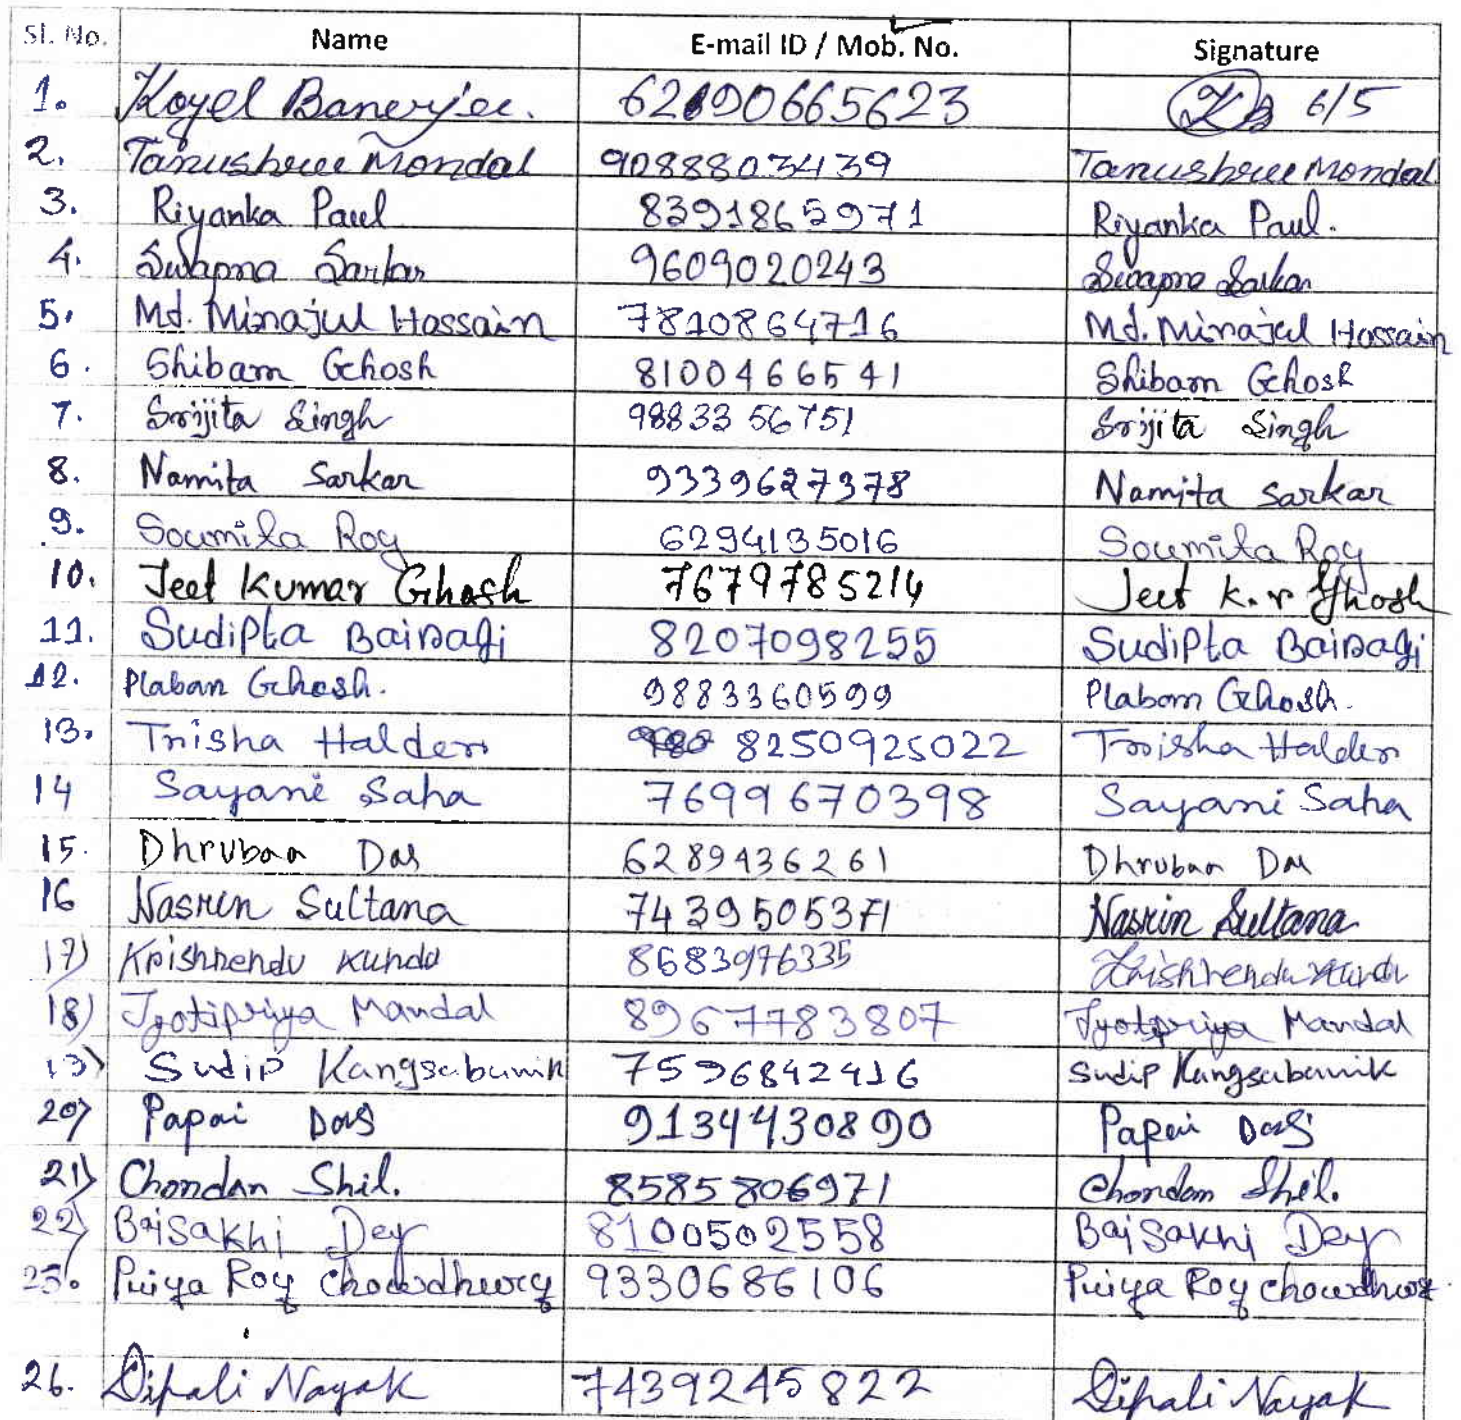 Sl. No. Name E-mail ID / Mob. No. Signature
1. Koyel Banerjee. 6290665623 KB 6/5
2. Tanushree Mondal 9088803439 Tanushree Mondal
3. Riyanka Paul 8391865971 Riyanka Paul.
4. Swapna Sarkar 9609020243 Swapna Sarkar
5. Md. Minajul Hossain 7810864716 Md. Minajul Hossain
6. Shibam Ghosh 8100466541 Shibam Ghosh
7. Srijita Singh 9883356751 Srijita Singh
8. Namita Sarkar 9339627378 Namita Sarkar
9. Soumita Roy 6294135016 Soumita Roy
10. Jeet Kumar Ghosh 7679785214 Jeet K.r Ghosh
11. Sudipta Bairagi 8207098255 Sudipta Bairagi
12. Plaban Ghosh. 9883360599 Plaban Ghosh.
13. Trisha Halder 8250925022 Trisha Halder
14 Sayani Saha 7699670398 Sayani Saha
15. Dhrubaa Das 6289436261 Dhrubaa Das
16 Nasrin Sultana 7439505371 Nasrin Sultana
17) Krishnendu Kundu 8683976335 Krishnendu Kundu
18) Jyotipriya Mandal 8967783807 Jyotipriya Mandal
19) Sudip Kangsabanik 7596842416 Sudip Kangsabanik
20) Papai Das 9134430890 Papai Das
21) Chondan Shil. 8585806971 Chondan Shil.
22) Baisakhi Dey 8100502558 Baisakhi Dey
25. Priya Roy Chowdhury 9330686106 Priya Roy Chowdhury
26. Dipali Nayak 7439245822 Dipali Nayak